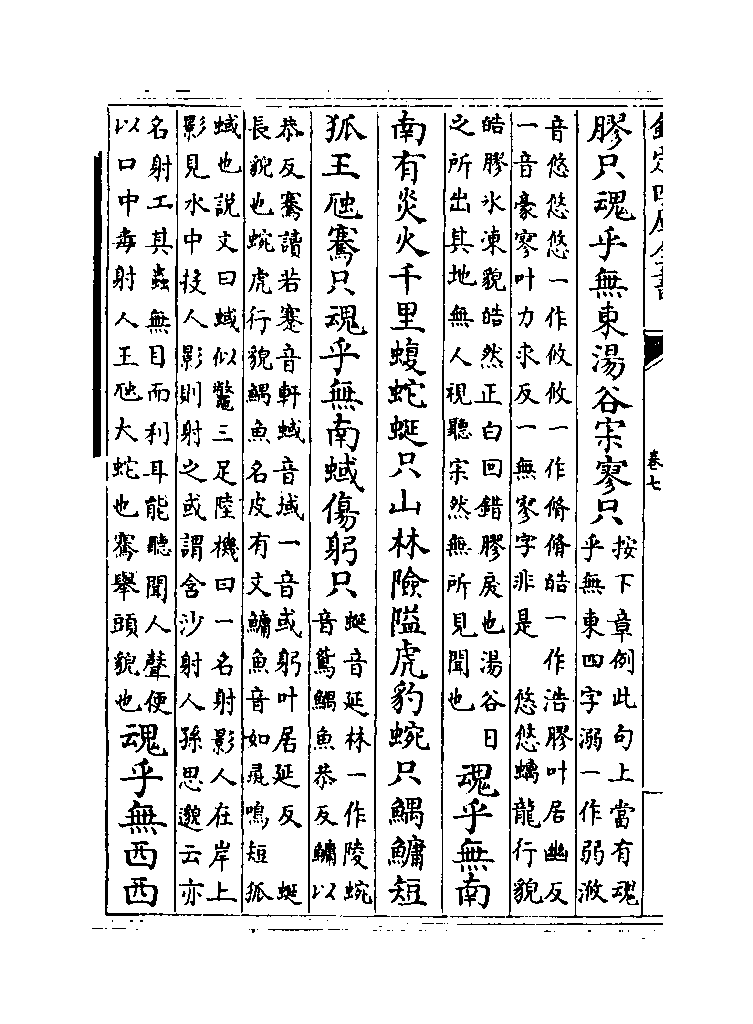 欽定四庫全書
卷七
膠只魂乎無東湯谷宋寥只按下章例此句上當有魂
乎無東四字溺一作弱滺
音悠悠悠一作攸攸一作脩脩皓一作浩膠叶居幽反
一音豪寥叶力求反一無寥字非是 悠悠螭龍行貌
皓膠氷凍貌皓然正白回錯膠戾也湯谷日
之所出其地無人視聽宋然無所見聞也 魂乎無南
南有炎火千里蝮蛇蜒只山林險隘虎豹蜿只鰅鱅短
狐王虺騫只魂乎無南蜮傷躬只蜒音延林一作陵蜿
音鴛鰅魚恭反鱅以
恭反騫讀若蹇音軒蜮音域一音或躬叶居延反 蜒
長貌也蜿虎行貌鰅魚名皮有文鱅魚音如彘鳴短狐
蜮也説文曰蜮似鼈三足陸機曰一名射影人在岸上
影見水中投人影則射之或謂含沙射人孫思邈云亦
名射工其蟲無目而利耳能聽聞人聲便
以口中毒射人王虺大蛇也騫舉頭貌也 魂乎無西西